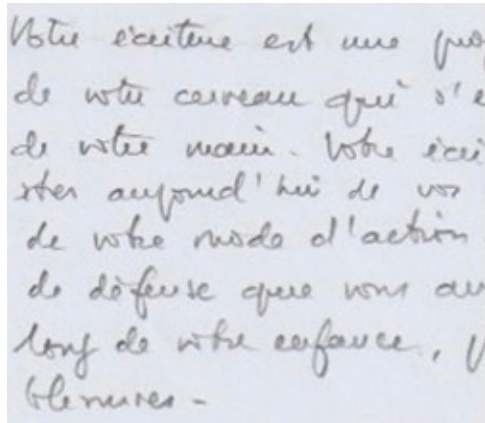 Votre écriture est une
de votre cerveau qui s'e
de votre main. Votre éci
ster aujourd'hui de vos
de votre mode d'action
de défense que vous av
long de votre enfance,
blessures -